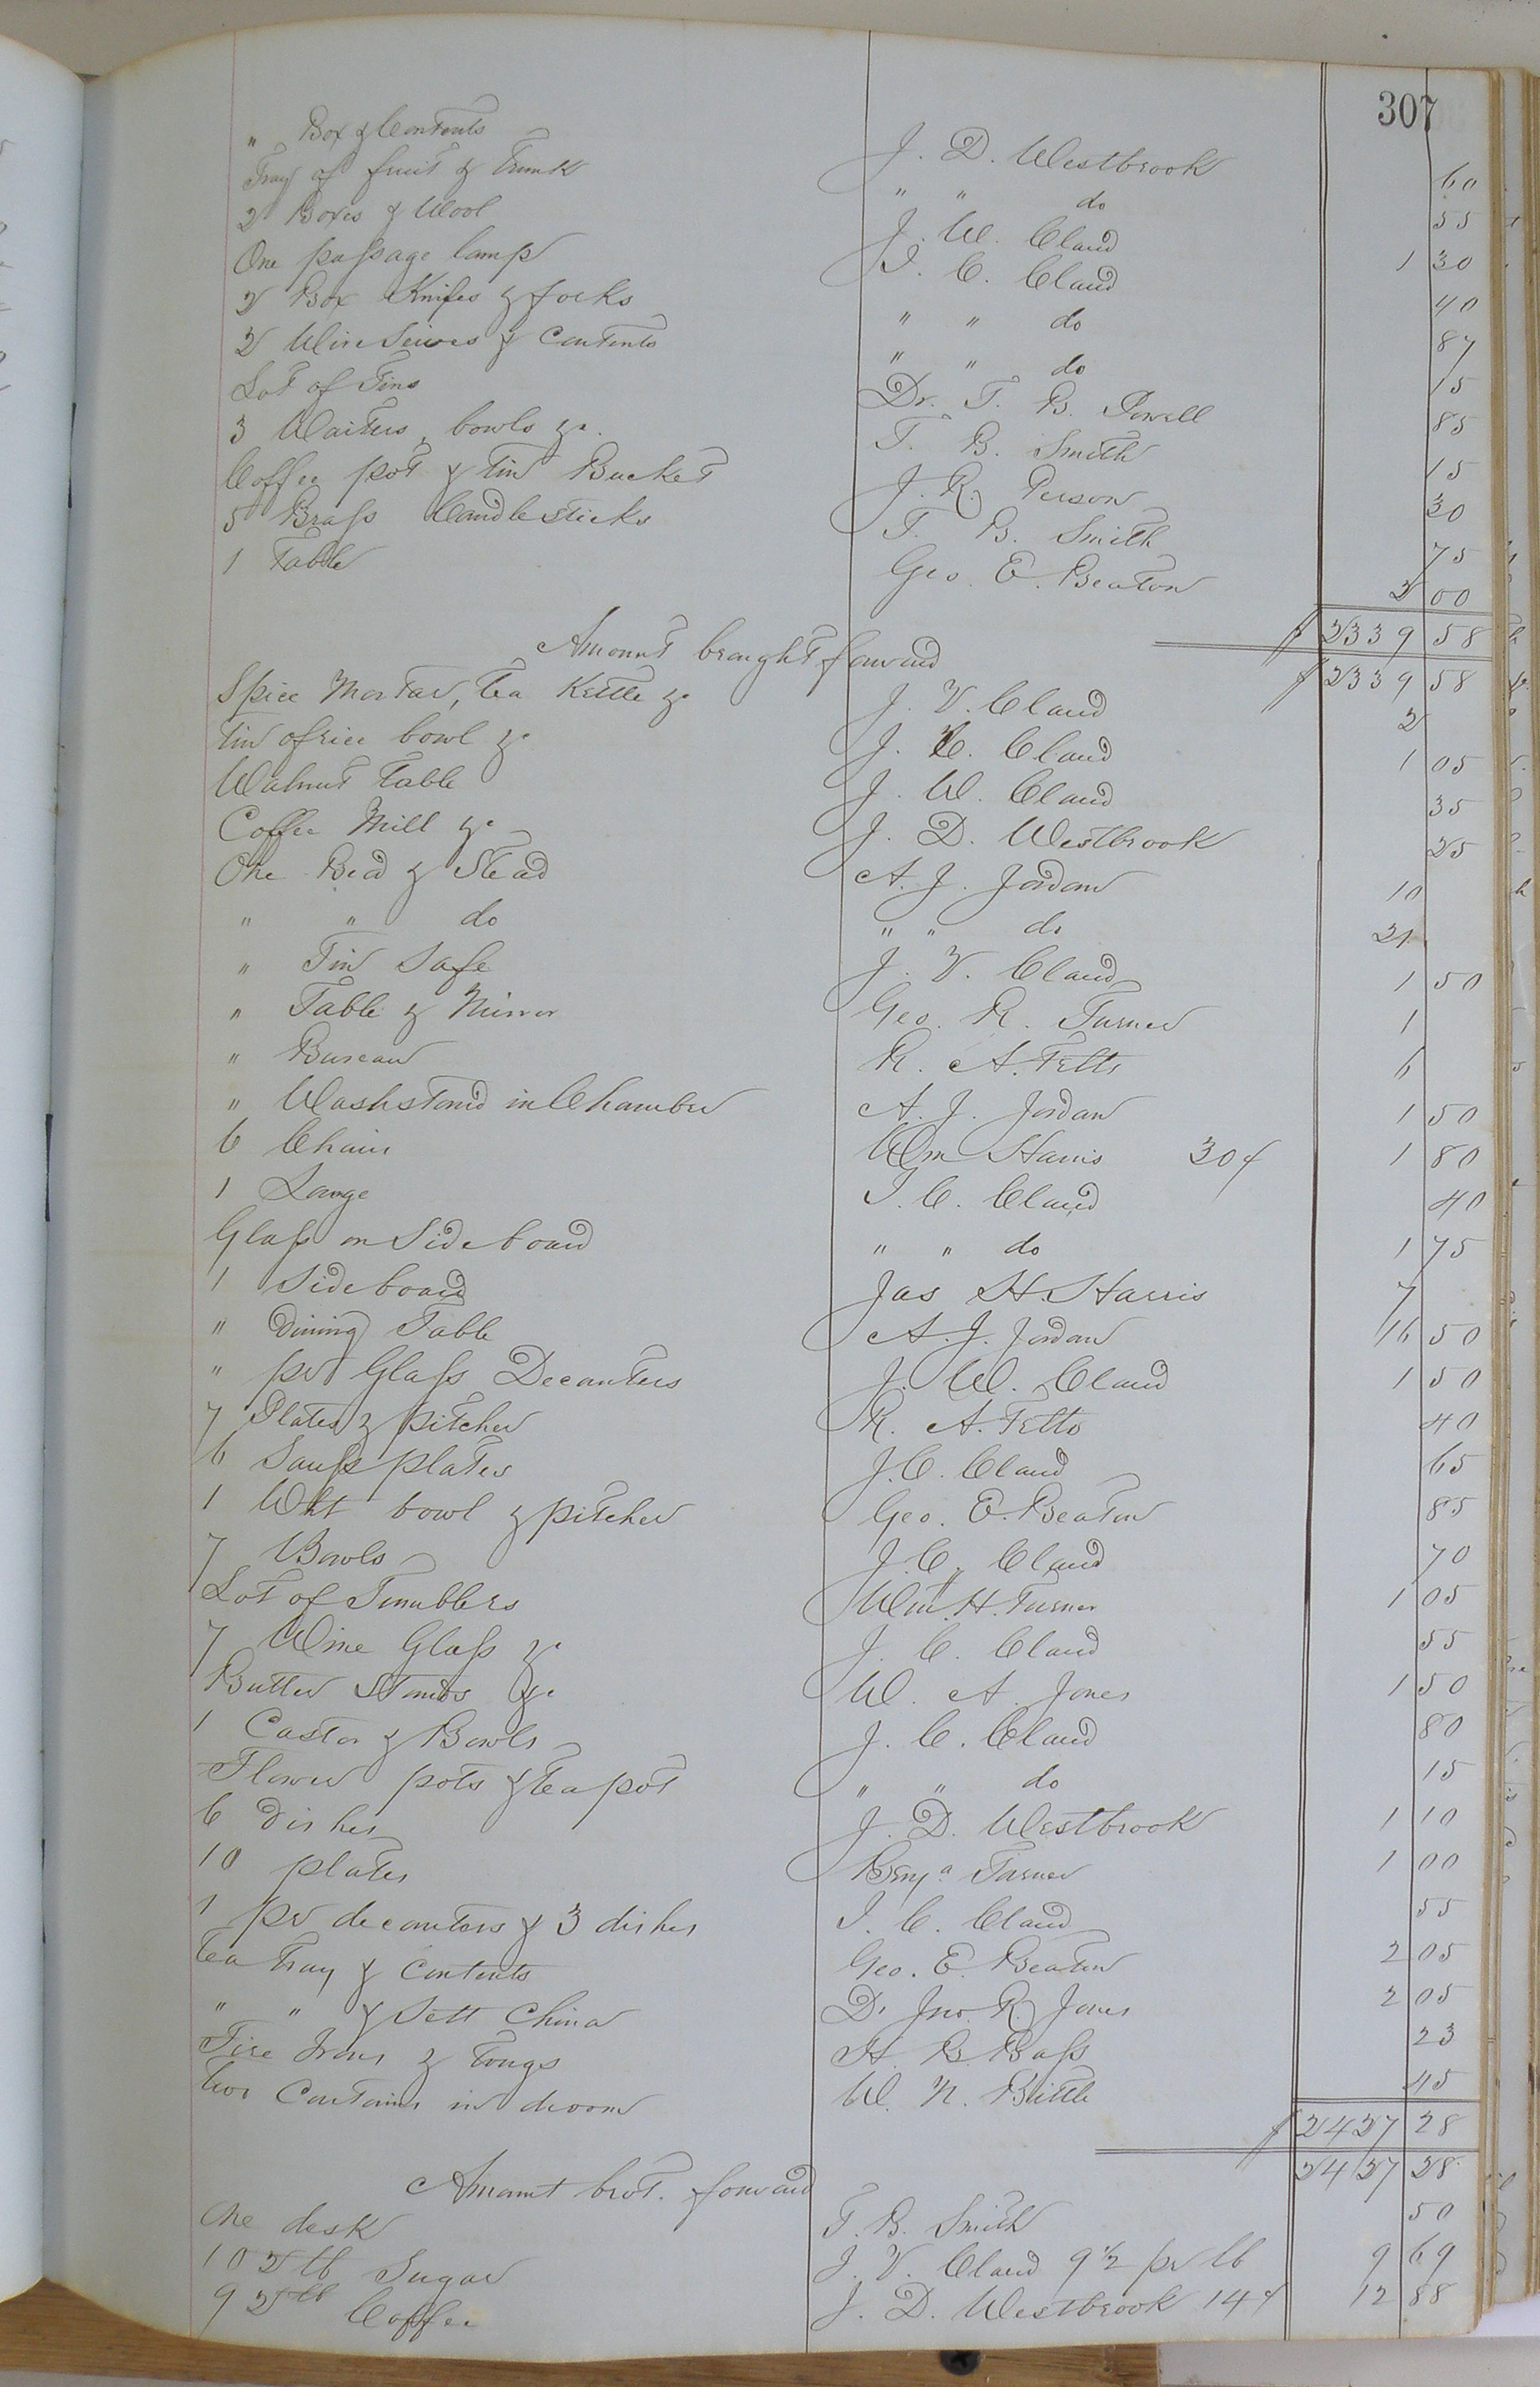 307
" Box & Contents J. D. Westbrook 60
Tray of fruit & Trunk " " do 55
2 Boxes & Wool J. W. Claud 1 30
One passage lamp J. C. Claud 40
2 Box Knifes & forks " " do 87
2 Wire Seives & Contents " " do 15
Lot of Tins Dr. T. B. Powell 85
3 Waiters, bowls &c. T. B. Smith 15
Coffee pot & tin Bucket J. R. Person 30
5 Brass Candlesticks T. B. Smith 75
1 Table Geo. E. Beaton 2 00
$ 2339 58
Amount brought forward $ 2339 58
Spice Mortar, Tea Kettle &c J. V. Claud 2
Tin of rice bowl &c J. C. Claud 1 05
Walnut Table J. W. Claud 35
Coffee Mill &c J. D. Westbrook 25
One Bed & Stead A. J. Jordan 10
" " do " " do 21
" Tin Safe J. V. Claud 1 50
" Table & Mirror Geo. R. Turner 1
" Bureau R. A. Felts 6
" Washstand in Chamber A. J. Jordan 1 50
6 Chairs Wm Harris 30¢ 1 80
1 Lounge J. C. Claud 40
Glass on Sideboard " " do 1 75
1 Sideboard Jas H. Harris 7
" Dining Table A. J. Jordan 16 50
" pr Glass Decanters J. W. Claud 1 50
7 Plates & pitcher R. A. Felts 40
6 Sauss plates J. C. Claud 65
1 Wht bowl & pitcher Geo. E. Beaton 85
7 Bowls J. C. Claud 70
Lot of Tumblers Wm. H. Turner 1 05
7 Wine Glass &c J. C. Claud 55
Butter Stands &c W. A. Jones 1 50
1 Castor & Bowls J. C. Claud 80
Flower pots & tea pot " " do 15
6 dishes J. D. Westbrook 1 10
10 plates Benja Turner 1 00
1 pr decanters & 3 dishes J. C. Claud 55
Tea Tray & Contents Geo. E. Beaton 2 05
" " & Sett China Dr Jno. R. Jones 2 05
Fire Irons & Tongs H. B. Bass 23
two Curtains in droom W. N. Brittle 45
$ 2427 28
Amount brot. forward 2427 28
One desk T. B. Smith 50
102 lb Sugar J. V. Claud 9½ pr lb 9 69
92 lb Coffee J. D. Westbrook 14¢ 12 88